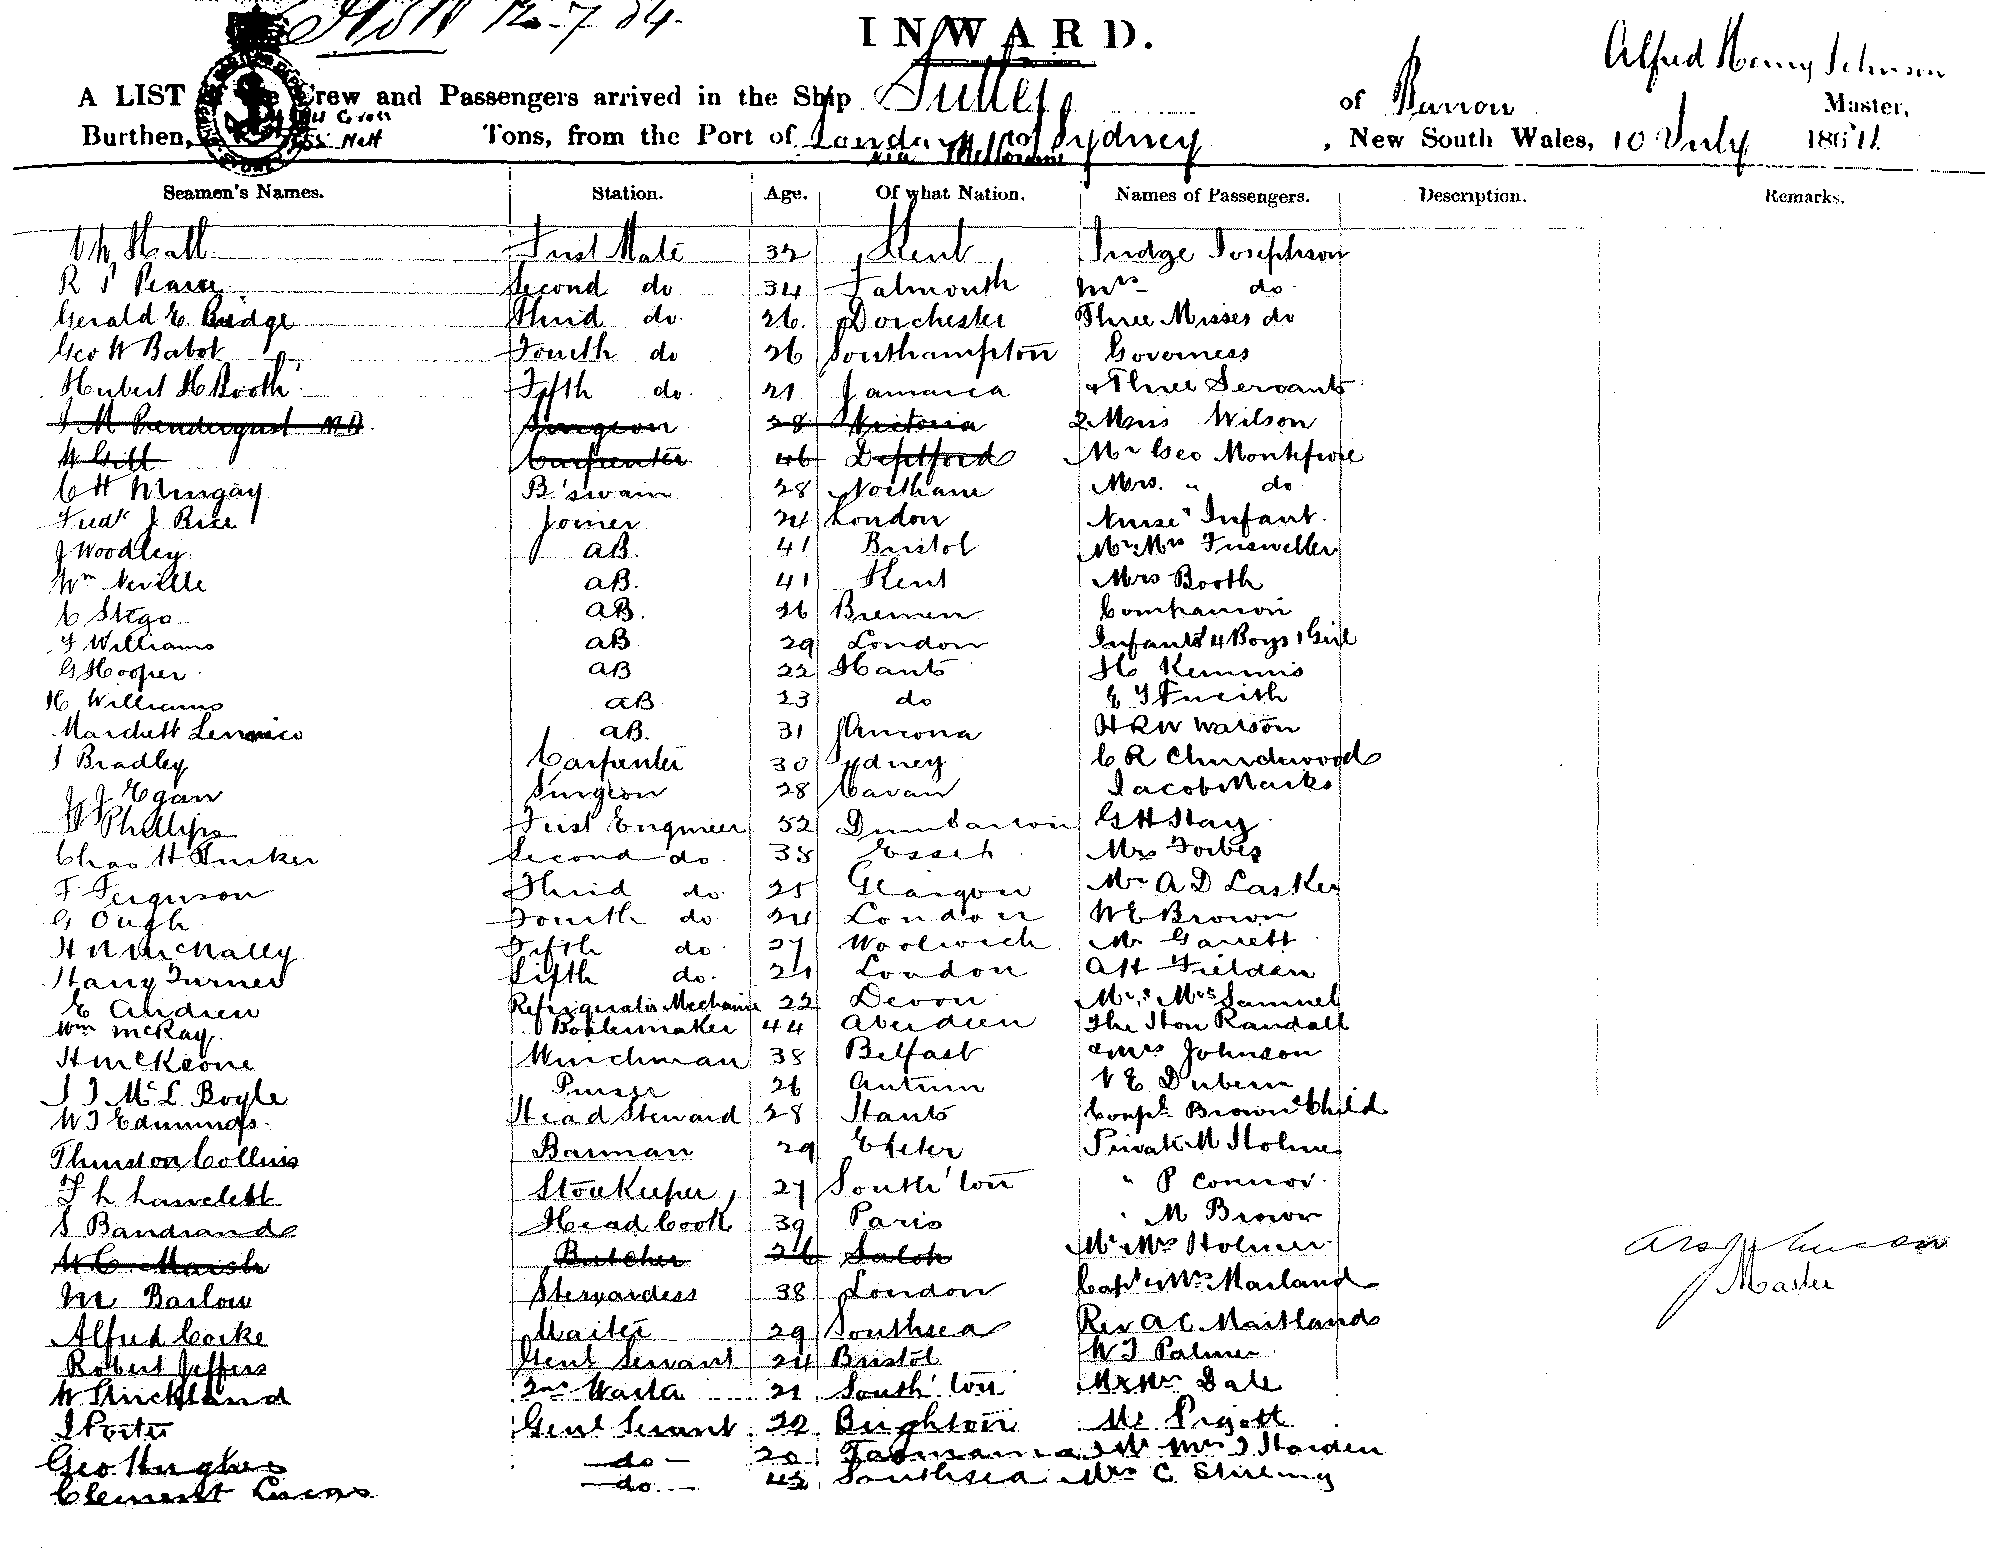 12-7-84
INWARD.
Alfred Henry Johnson
A LIST Crew and Passengers arrived in the Ship Sutlej of Barrow Master,
Burthen, Nett Tons, from the Port of London to Sydney, New South Wales, 10 July 188
via Melbourne
Seamen's Names. Station. Age. Of what Nation. Names of Passengers. Description. Remarks.
Hall First Mate 32 Kent Judge Josephson
R Pearce Second do 34 Falmouth Mrs do
Gerald E Budge Third do 26 Dorchester Three Misses do
Geo W Babot Fourth do 26 Southampton Governess
Hubert H Booth Fifth do 21 Jamaica & Three Servants
J M Prendergast MD Surgeon 28 Victoria 2 Miss Wilson
W Gill Carpenter 46 Deptford Mr Geo Montefiore
C H Mingay B'swain 28 Northam Mrs. " do
Fredk J Rice Joiner 24 London Nurse & Infant
J Woodley aB. 41 Bristol Mr & Mrs Fusweller
Wm Neville aB. 41 Kent Mrs Booth
C Stego aB. 26 Bremen Companion
F Williams aB 29 London Infant & 4 Boys 1 Girl
G Hooper aB 22 Hants H Kemmis
H Williams aB 23 do
Marchett aB. 31 Ancona H R W Watson
J Bradley Carpenter 30 Sydney C R
J J Egan Surgeon 28 Cavan Jacob Marks
Phillips First Engineer 52 Dumbarton G H Hay
Chas H Second do 38 Essex Mrs Forbes
F Ferguson Third do 25 Glasgow Mr A D Lasker
G Ough Fourth do 24 London W E Brown
H N McNally Fifth do 27 Woolwich Mr Garrett
Harry Turner Fifth do. 21 London A H Fielden
E Andrew Refrigerator Mechanic 22 Devon Mr & Mrs Samuel
Wm McKay Boilermaker 44 Aberdeen The Hon Randall
H McKeone Winchman 38 Belfast Mrs Johnson
J J McL Boyle Purser 26 Antrim V E
W J Edmunds Head Steward 28 Hants Corpl Brown & Child
Thurston Collins Barman 29 Exeter Private M Holmes
Storekeeper 27 South'ton " P Connor
S Head Cook 39 Paris " M Brown
W C Marsh Butcher 26 Mr Mrs Holmes
M Barlow Stewardess 38 London Capt & Mrs Marland
Alfred Cocke Waiter 29 Southsea Rev A C Maitland
Robert Jeffers Genl Servant 24 Bristol W J Palmer
W Strickland 2nd 21 South'ton Mr & Mrs Dale
J Porter Genl Servant 22 Brighton Mr Pigott
Geo Hughes do 20 Tasmania Mr Mrs J Harden
Clement Lucas do 43 Southsea Mrs C Stirling
Johnson
Master